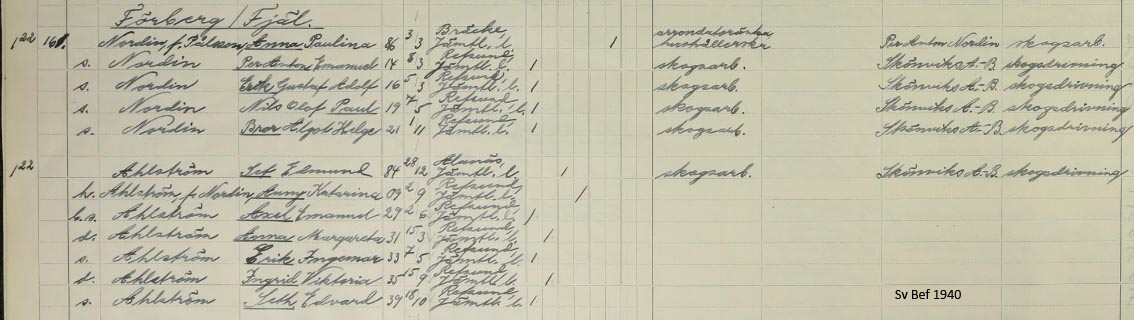 Förberg / Fjäl.
1²² 16 Nordin, f. Pålsson, Anna Paulina 86 3/3 Bräcke, Jämtl. l. 1 arrondatoränka hushållerska Per Anton Nordin skogsarb.
s. Nordin Per Anton Emanuel 14 8/3 Refsund, Jämtl. l. 1 skogsarb. Skönviks A.-B. skogsdrivning
s. Nordin Erik Gustaf Adolf 16 5/3 Refsund, Jämtl. l. 1 skogsarb. Skönviks A.-B. skogsdrivning
s. Nordin Nils Olof Paul 19 7/5 Refsund, Jämtl. l. 1 skogsarb. Skönviks A.-B. skogsdrivning
s. Nordin Bror Algot Helge 21 1/11 Refsund, Jämtl. l. 1 skogsarb. Skönviks A.-B. skogsdrivning
1²² Ahlström Set Edmund 84 28/12 Alanäs, Jämtl. l. 1 skogsarb. Skönviks A.-B. skogsdrivning
h. Ahlström, f. Nordin, Anny Katarina 09 2/9 Refsund, Jämtl. l. 1
b.s. Ahlström Axel Emanuel 29 2/6 Refsund, Jämtl. l. 1
d. Ahlström Anna Margareta 31 15/3 Refsund, Jämtl. l. 1
s. Ahlström Erik Ingemar 33 7/5 Refsund, Jämtl. l. 1
d. Ahlström Ingrid Viktoria 35 15/9 Refsund, Jämtl. l. 1
s. Ahlström Seth Edvard 39 18/10 Refsund, Jämtl. l. 1
Sv Bef 1940